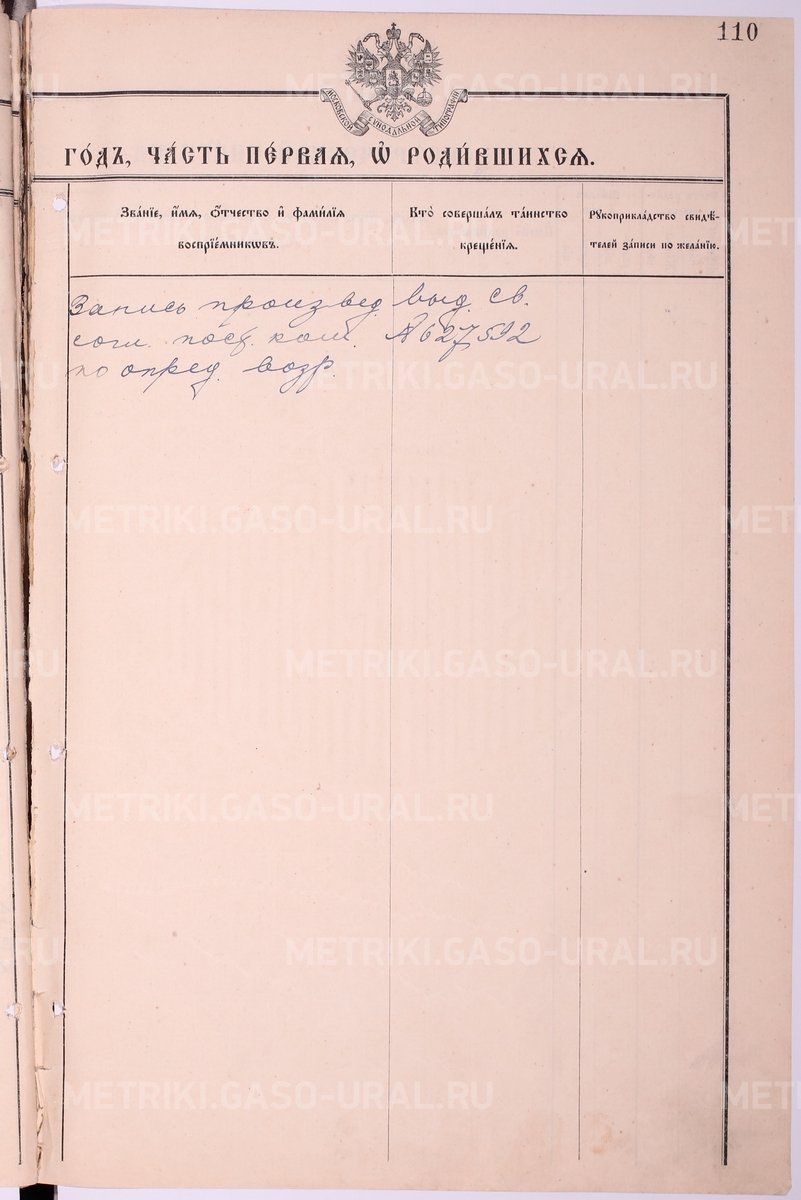 110
МОСКОВСКОЙ СѴНОДАЛЬНОЙ ТИПОГРАФІИ
го́дъ, ча́сть пе́рваѧ, ѡ҆ роди́вшихсѧ.
Зва́нїе, и҆́мѧ, ѻ҆́тчество и҆ фами́лїѧ
воспрїе́мникѡвъ.
Кто̀ соверша́лъ та́инство
креще́нїѧ.
Рꙋкоприкла́дство свидѣ́-
телей за́писи по жела́нїю.
Запись произвед. выд. св.
согл. пост. ком. № 627592
по опред. возр.
METRIKI.GASO-URAL.RU